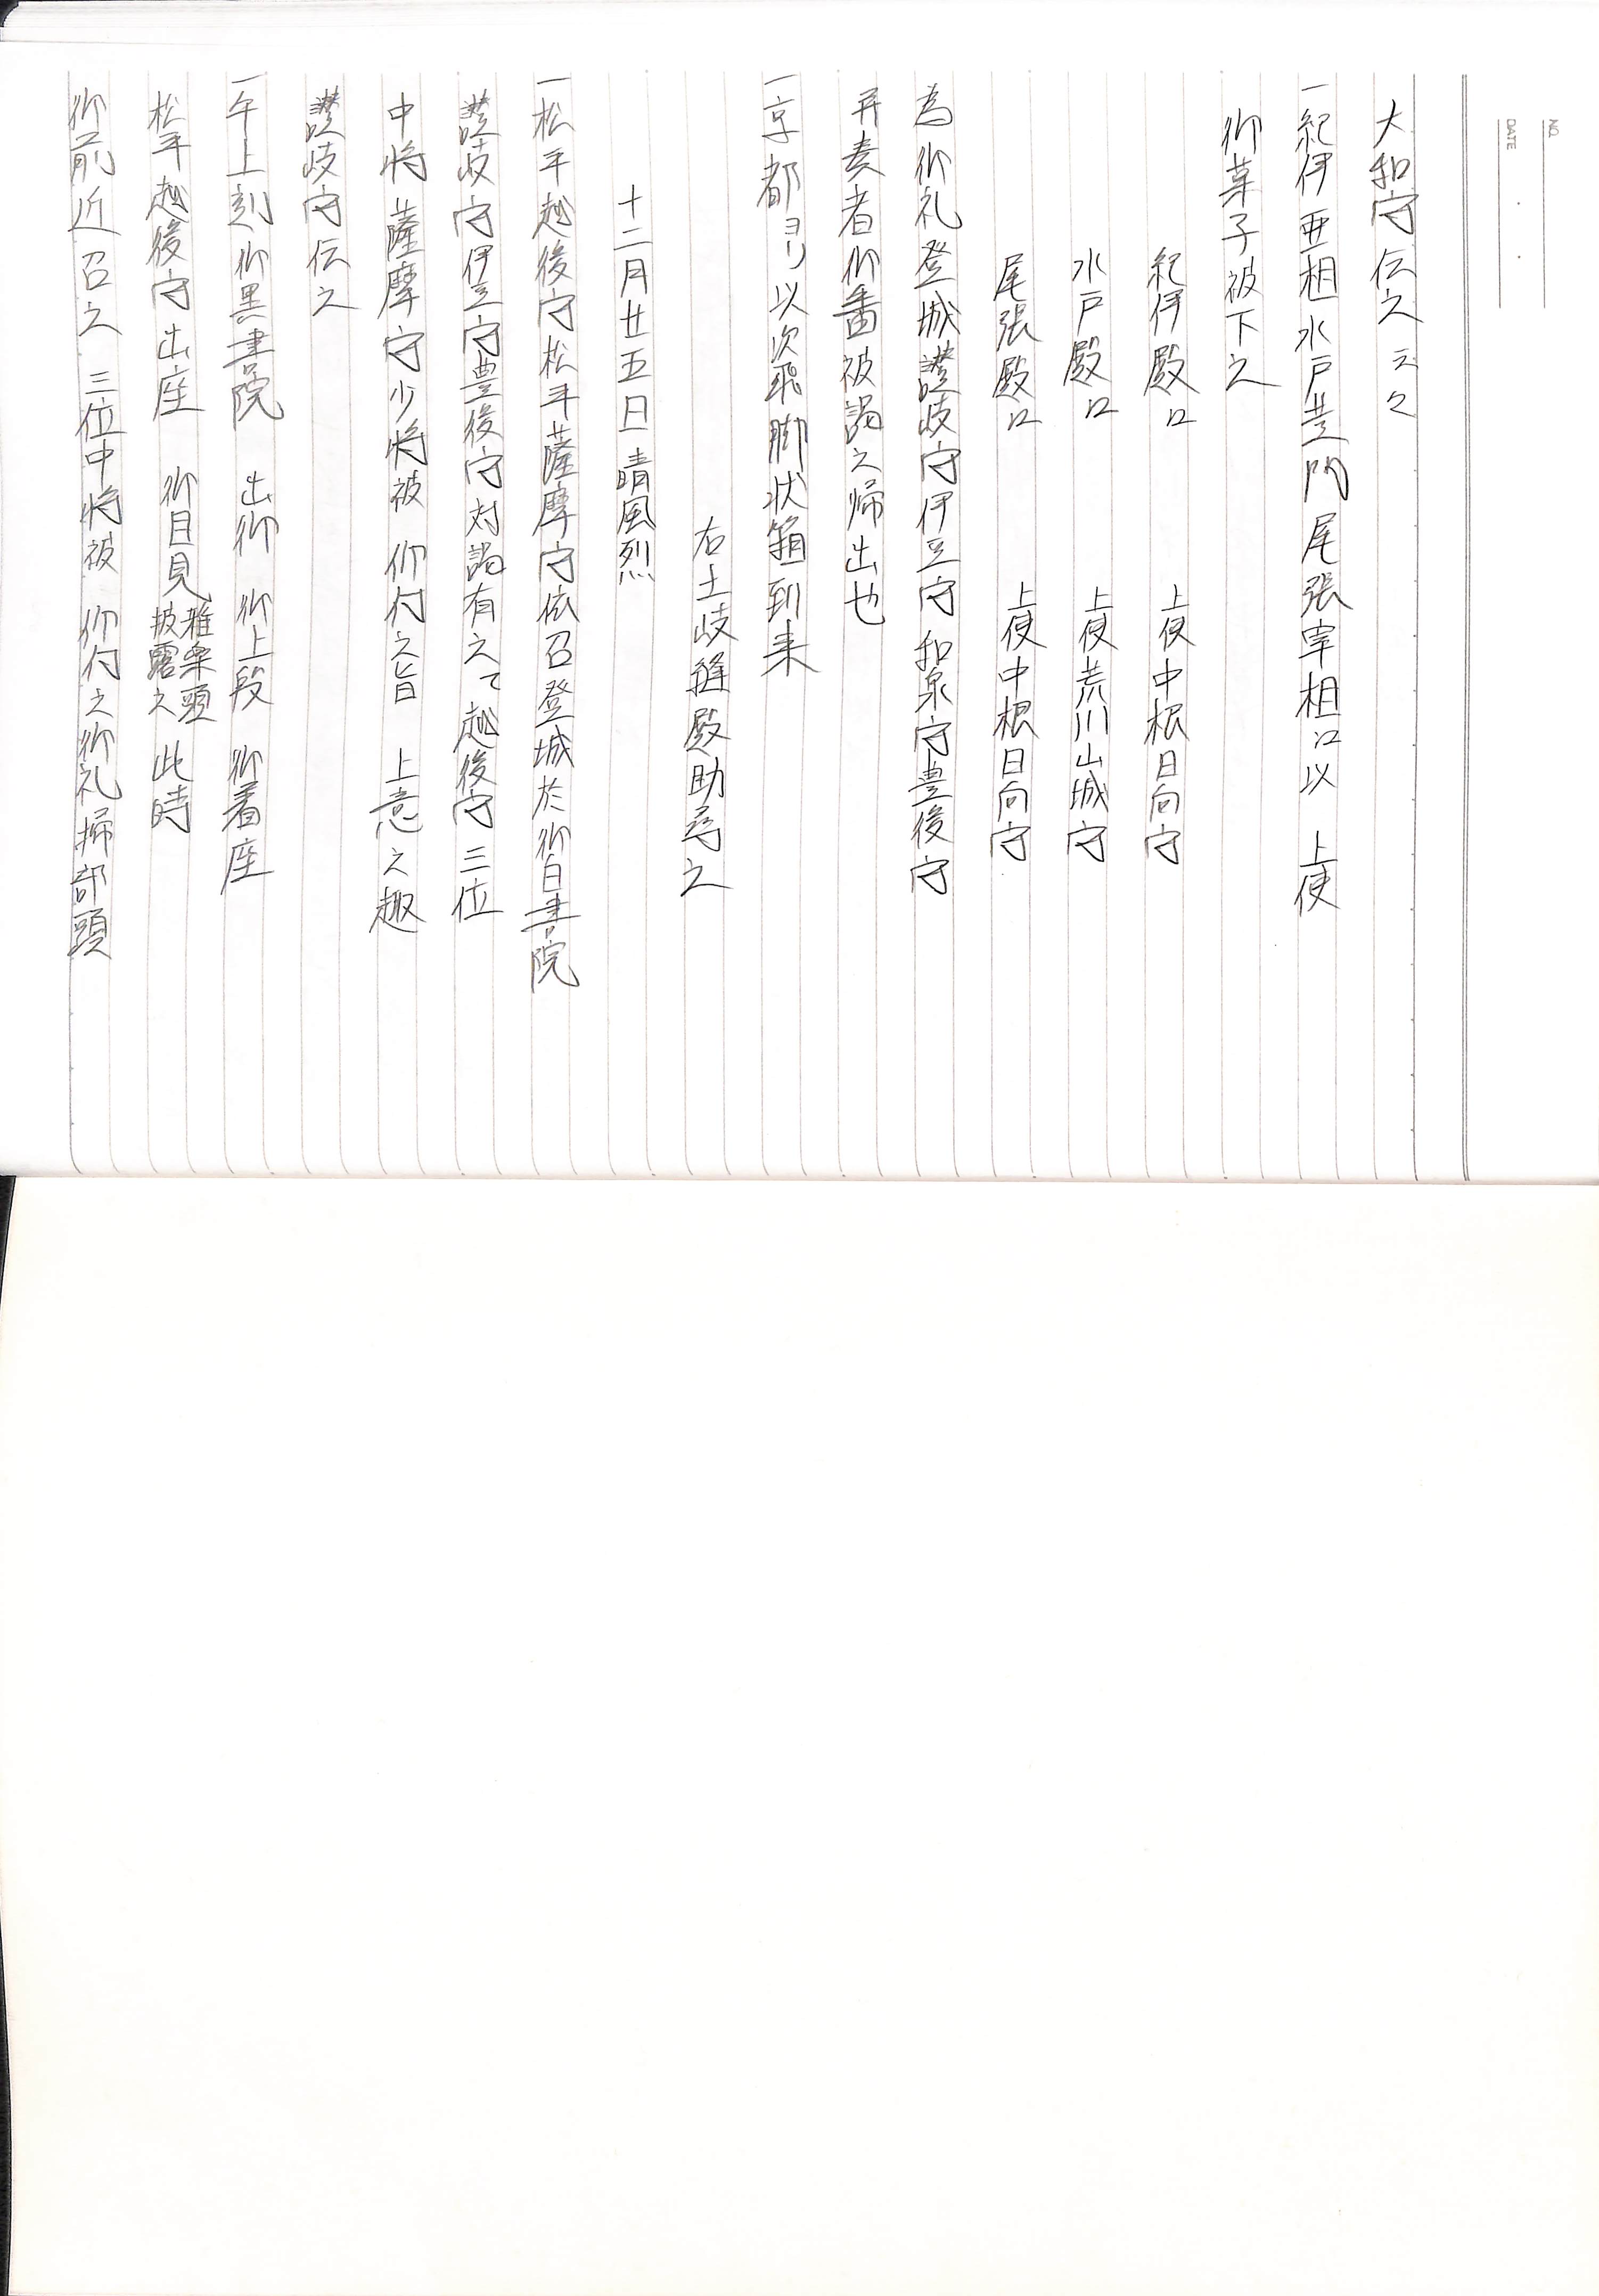 NO.
DATE
大和守伝之云々
一紀伊亜相水戸黄門尾張宰相江以 上使
御菓子被下之
紀伊殿江 上使中根日向守
水戸殿江 上使荒川山城守
尾張殿江 上使中根日向守
為御礼登城讃岐守伊豆守和泉守豊後守
并奏者御番被謁之帰出也
一京都ヨリ以次飛脚状箱到来
右土岐縫殿助尋之
十二月廿五日晴風烈
一松平越後守松平薩摩守依召登城於御白書院
讃岐守伊豆守豊後守対謁有之て越後守三位
中将薩摩守少将被 仰付之旨 上意之趣
讃岐守伝之
一午上刻御黒書院 出御 御上段 御着座
松平越後守出座 御目見 雅楽頭披露之 此時
御前近召之 三位中将被 仰付之御礼掃部頭